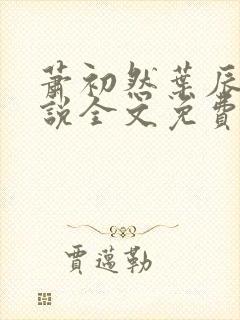 蕭初然葉辰
說全文免費
賈邁勒